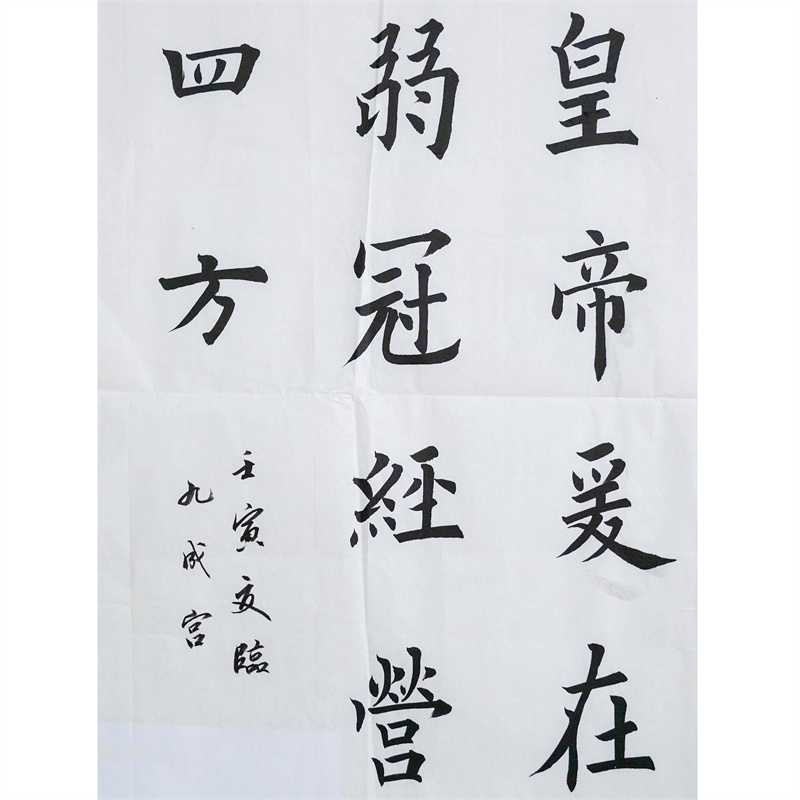 皇帝爰在
弱冠經營
四方
壬寅夏臨
九成宮